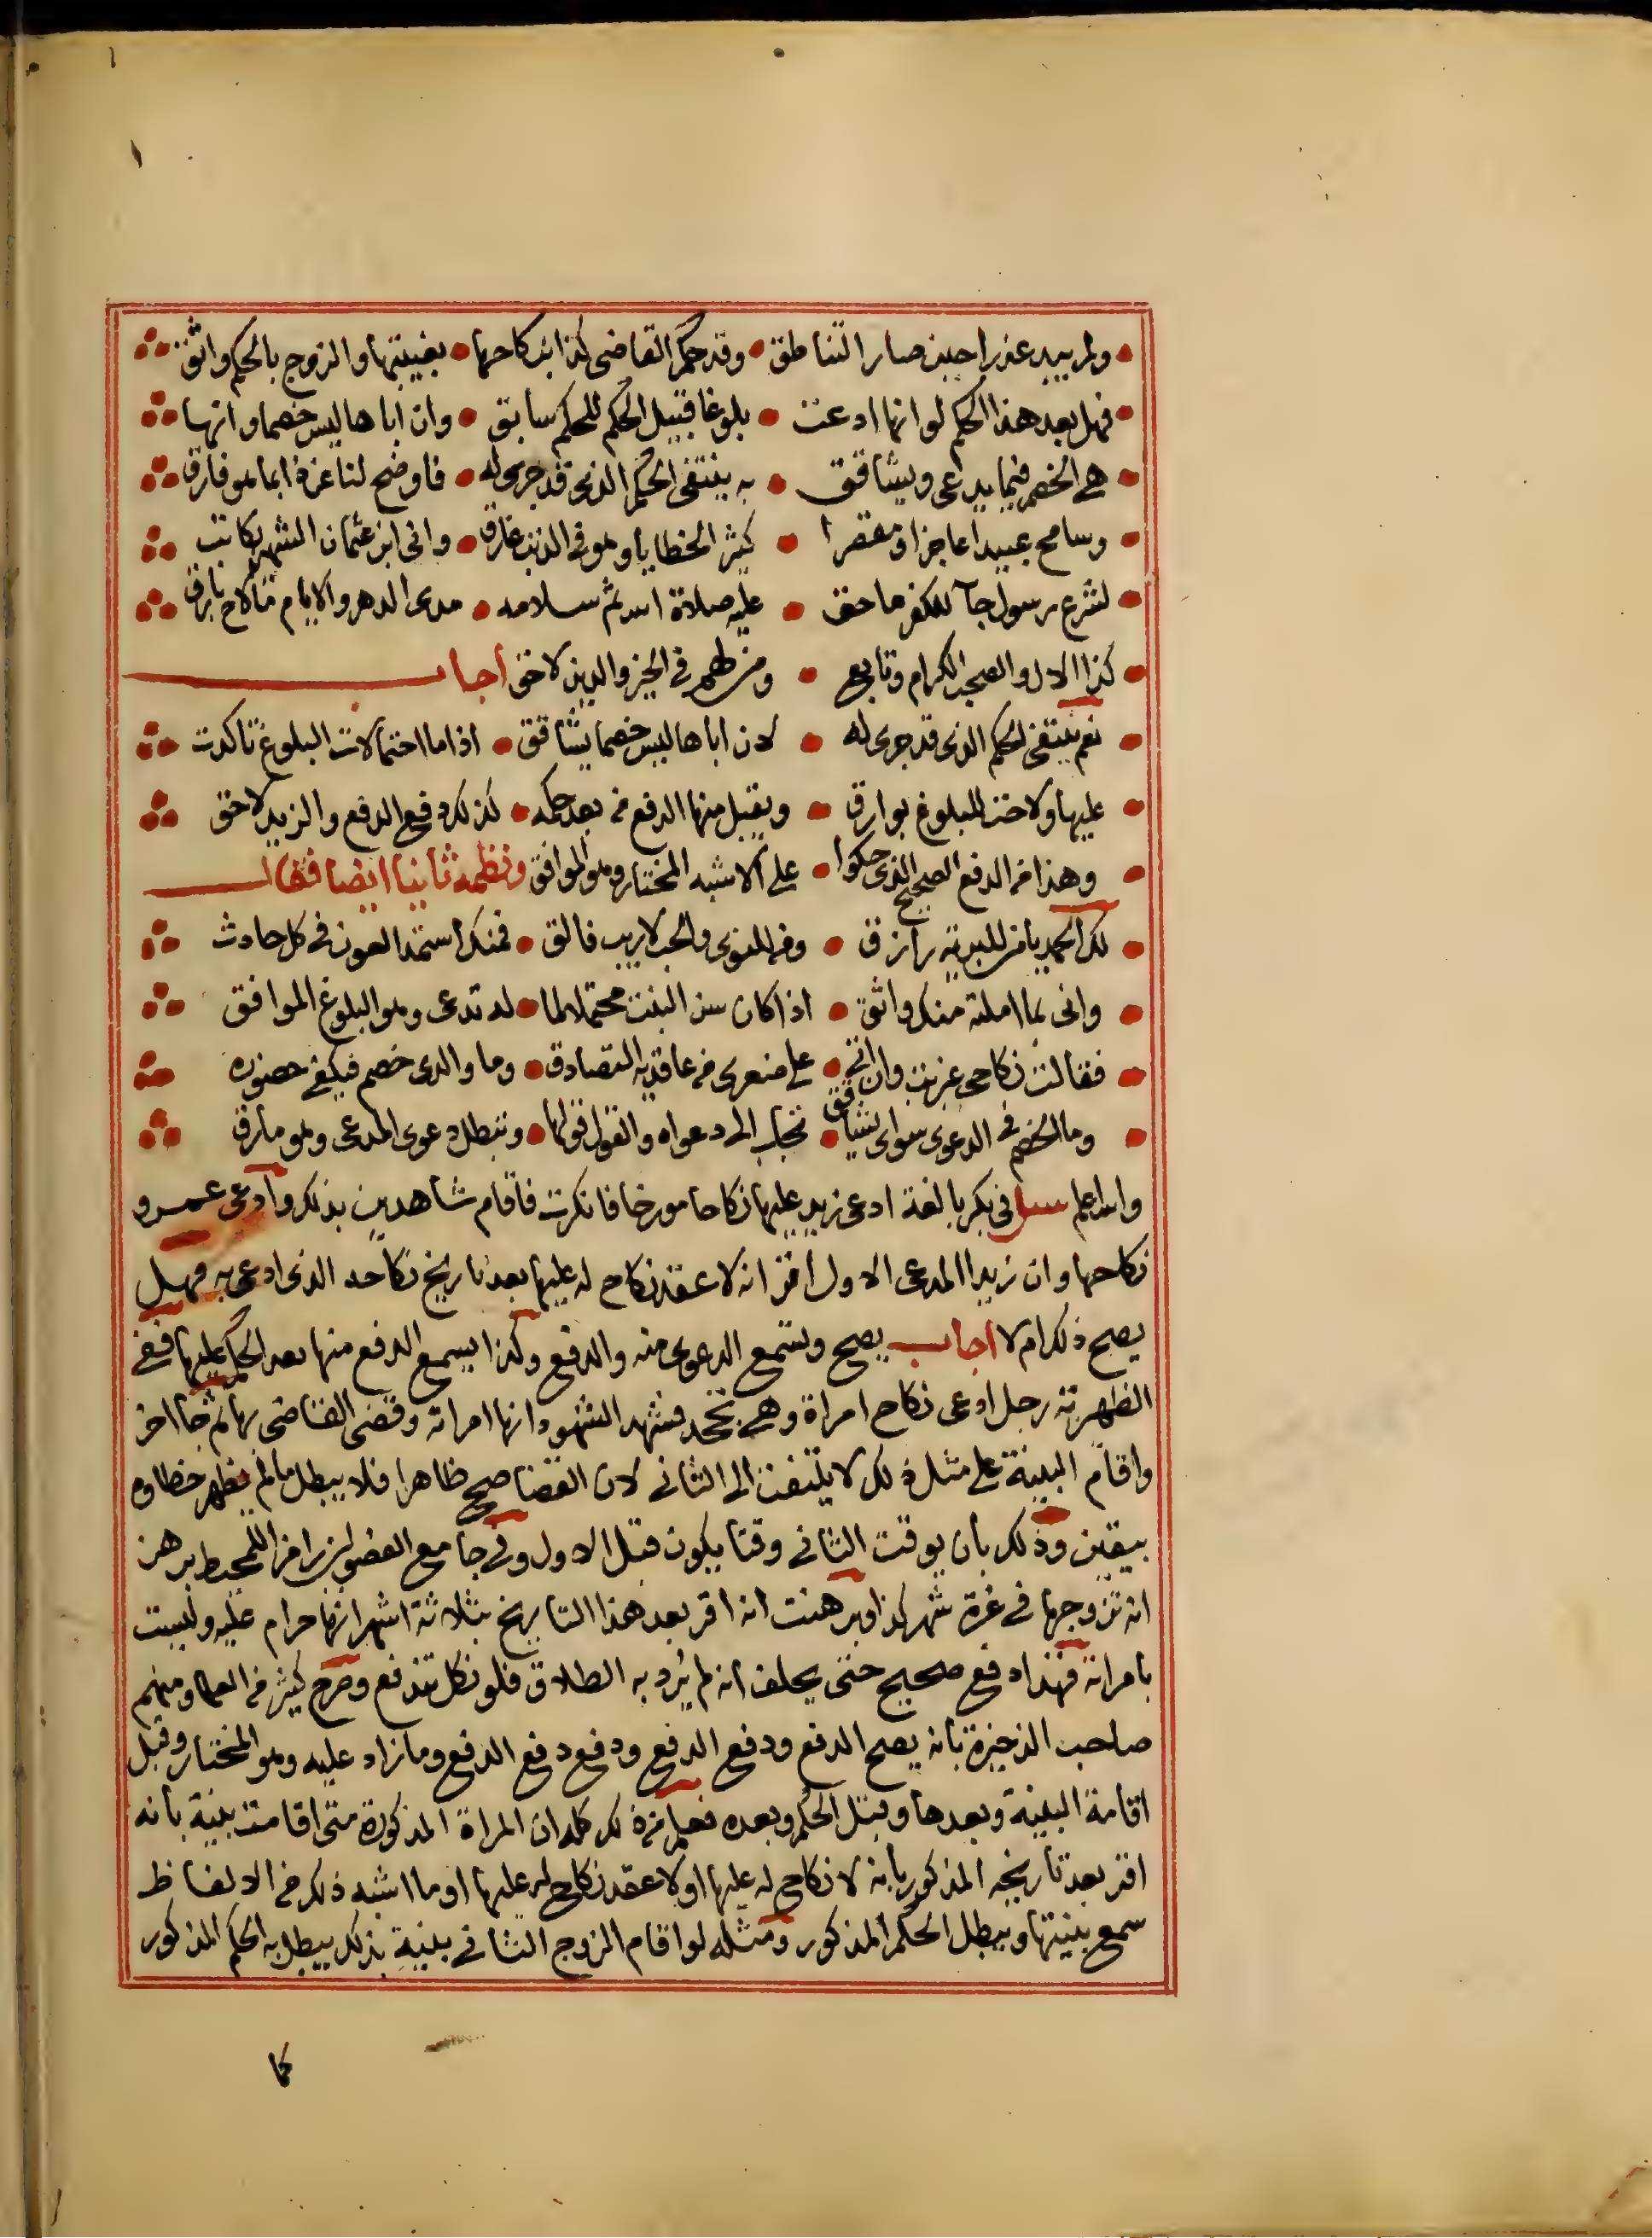 ولم يبد عذرا حين صار التناطق • وقد حكم القاضي كذا بنكاحها • بغيبتها والزوج بالحكم واثق
فهل بعد هذا الحكم لو انها ادعت • بلوغا قبيل الحكم للحكم سابق • وان اباها ليس خصما وانها
هي الخصم فيما يدعى ويشاقق • به ينتفى الحكم الذي قد جرى له • فاوضح لنا عن ذا بما هو فارق
وسامح عبيدا عاجزا ومقصرا • كثير الخطايا وهو في الذنب غارق • واني ابن عثمان الشهير بكاتب
لشرع رسول جآ للكفر ماحق • عليه صلاة الله ثم سلامه • مدى الدهر والايام مالاح بارق
كذا الال والصحب الكرام وتابع • ومن لهم في الخير والدين لاحق اجاب
نعم ينتفى الحكم الذي قد جرى له • لان اباها ليس خصما يشاقق • اذا ما احتمالات البلوغ تاكدت
عليها ولاحت للبلوغ بوارق • ويقبل منها الدفع من بعد حكمه • كذلك دفع الدفع والزيد لاحق
وهذا من الدفع الصحيح الذي حكوا • على الاشبه المختار وهو الموافق ونظمه ثانيا ايضا فقال
لك الحمد يا من للبرية رازق • ومن للنوى والحب لاريب فالق • فمنك استمد العون في كل حادث
واني بما املته منك واثق • اذا كان سن البنت محتملا لما • له تدعى وهو البلوغ الموافق
فقالت نكاحي عن بت وانني • على منعرى من عاقديه التصادق • وما والدي خصم فيكفى حضوره
وما الخصم في الدعوى سواى يشاقق • تجاب الى دعواه والقول قولها • وتبطل دعوى المدعى وهو مارق
والله اعلم سئل في بكر بالغة ادعى زيد عليها نكاحا مورخا فانكرت فاقام شاهدين بذلك وادعى عمرو
نكاحها وان زيدا المدعى الاول اقر انه لا عقد نكاح له عليها بعد تاريخ نكاحه الذي ادعى به فهل
يصح ذلك ام لا اجاب يصح وتسمع الدعوى منه والدفع وكذا يسمع الدفع منها بعد الحكم عليها ففي
الظهيرية رجل ادعى نكاح امراة وهي تجحد فشهد الشهود انها امراته وقضى القاضي بها ثم جا اخر
واقام البينة على مثل ذلك لا يلتفت الى الثاني لان القضا صح ظاهرا فلا يبطل مالم يظهر خطاوه
بيقين وذلك بان يوقت الثاني وقتا يكون قبل الاول وفي جامع الفصولين رامزا للمحيط برهن
انه تزوجها في غرة شهر كذا وبرهنت انه اقر بعد هذا التاريخ بثلاثة اشهر انها حرام عليه وليست
بامراته فهذا دفع صحيح حتى يحلف انه لم يرد به الطلاق فلو نكل تندفع وصرح كثير من العلما ومنهم
صاحب الذخيرة بانه يصح الدفع ودفع الدفع ودفع دفع الدفع وما زاد عليه وهو المختار وقبل
اقامة البينة وبعدها وقبل الحكم وبعده فعلم من ذلك كله ان المراة المذكورة متى اقامت بينة بانه
اقر بعد تاريخه المذكور بانه لا نكاح له عليها او لا عقد نكاح له عليها او ما اشبه ذلك من الالفاظ
سمع بينتها ويبطل الحكم المذكور ومثله لو اقام الزوج الثاني بينة بذلك يبطل به الحكم المذكور
كما